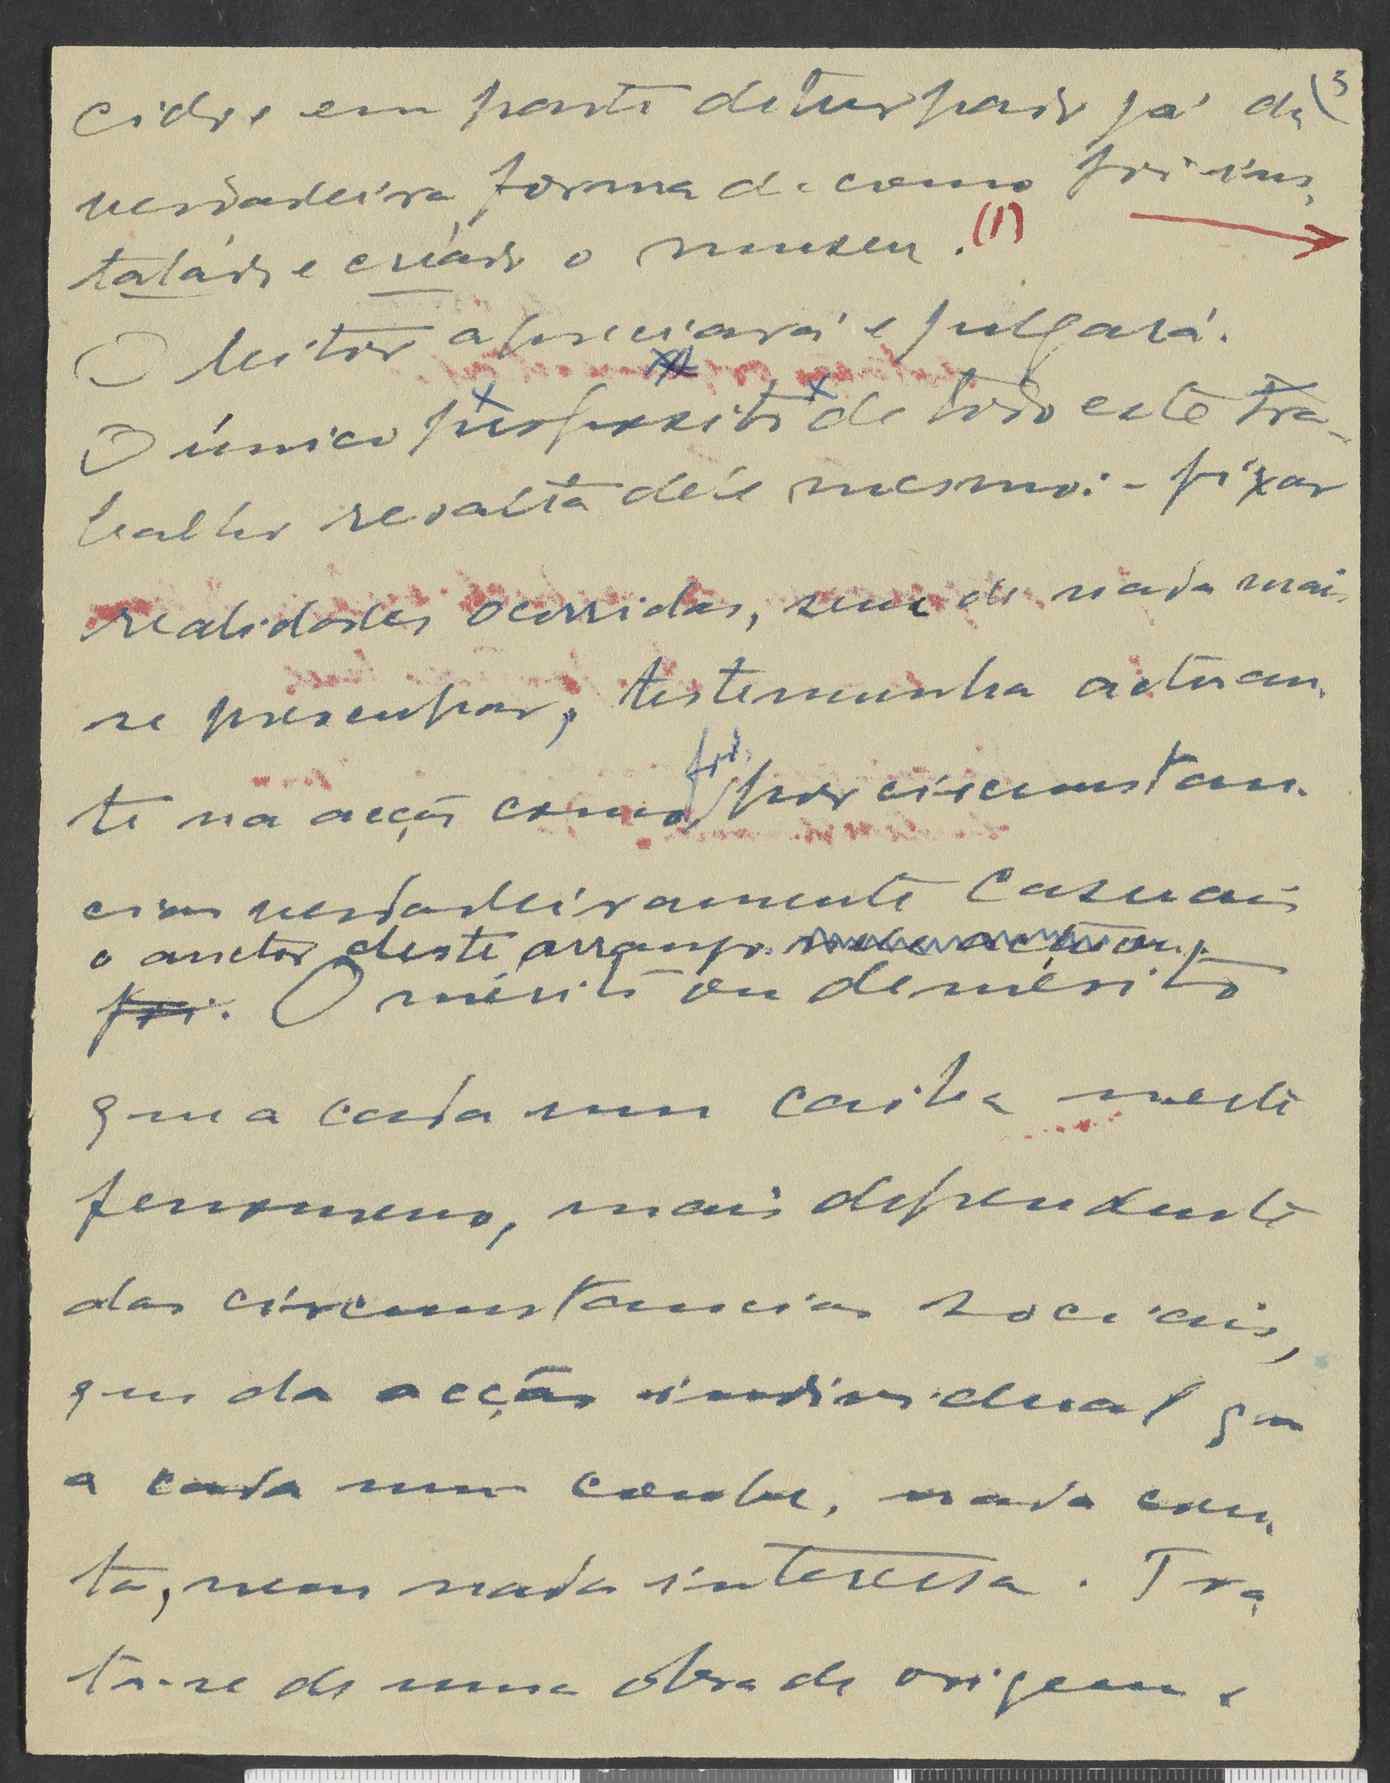 (3
cido e em parte deturpado já da
verdadeira forma de como foi ins-
talado e criado o museu. (1)
O leitor apreciará e julgará.
O único proposito de todo este tra-
balho resalta dele mesmo: - fixar
realidades ocorridas, sem de nada mais
se preocupar, testemunha actuan-
te na acção como foi, por circumstan-
cias verdadeiramente casuais
o auctor deste arranjo.
foi. O mérito ou demérito
que a cada um caiba neste
fenomeno, mais dependente
das circumstancias sociais,
que da acção individual que
a cada um coube, nada con-
ta, nem nada interessa. Tra-
ta-se de uma obra de origem e